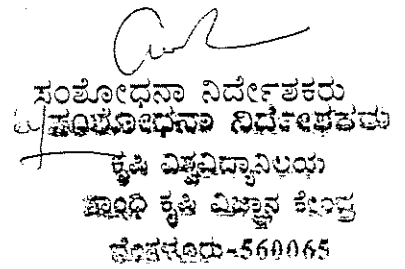 ಸಂಶೋಧನಾ ನಿರ್ದೇಶಕರು
ಸಂಶೋಧನಾ ನಿರ್ದೇಶಕರು
ಕೃಷಿ ವಿಶ್ವವಿದ್ಯಾನಿಲಯ
ಗಾಂಧಿ ಕೃಷಿ ವಿಜ್ಞಾನ ಕೇಂದ್ರ
ಬೆಂಗಳೂರು-560065